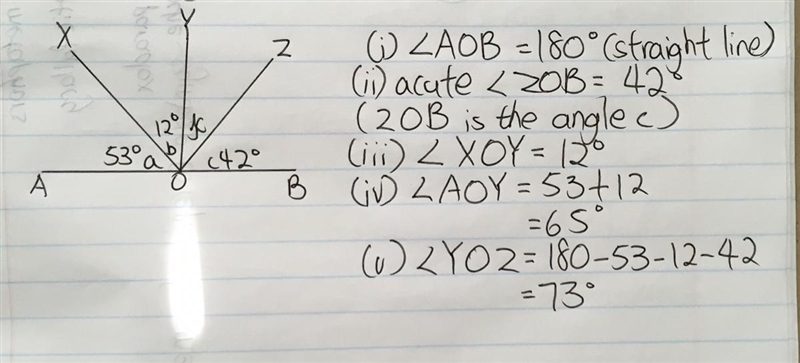 X
Y
Z
12° x
53° a b c 42°
A O B
(i) ∠AOB = 180° (straight line)
(ii) acute ∠ZOB = 42°
(ZOB is the angle c)
(iii) ∠XOY = 12°
(iv) ∠AOY = 53+12
= 65°
(v) ∠YOZ = 180-53-12-42
= 73°